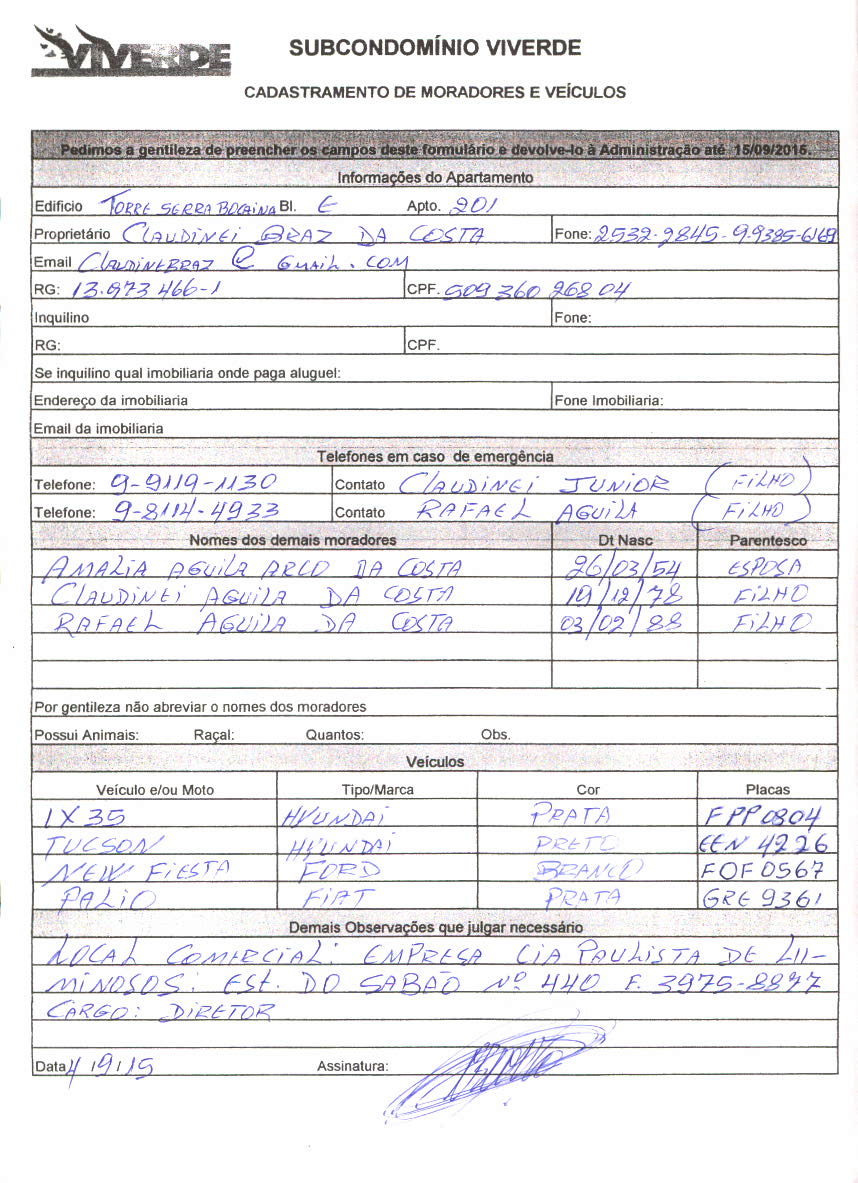 VIVERDE
SUBCONDOMÍNIO VIVERDE
CADASTRAMENTO DE MORADORES E VEÍCULOS
Pedimos a gentileza de preencher os campos deste formulário e devolve-lo à Administração até 15/09/2015.
Informações do Apartamento
Edificio TORRE SERRA BOCAINA Bl. E Apto. 201
Proprietário CLAUDINEI BRAZ DA COSTA Fone: 2532-2845-9-9385-6169
Email CLAUDINEBRAZ @ GMAIL.COM
RG: 13.973 466-1 CPF. 509 360 268 04
Inquilino Fone:
RG: CPF.
Se inquilino qual imobiliaria onde paga aluguel:
Endereço da imobiliaria Fone Imobiliaria:
Email da imobiliaria
Telefones em caso de emergência
Telefone: 9-9119-1130 Contato CLAUDINEI JUNIOR (FILHO)
Telefone: 9-8114-4933 Contato RAFAEL AGUILA (FILHO)
Nomes dos demais moradores Dt Nasc Parentesco
AMALIA AGUILA ARCO DA COSTA 26/03/54 ESPOSA
CLAUDINEI AGUILA DA COSTA 19/12/78 FILHO
RAFAEL AGUILA DA COSTA 03/02/88 FILHO
Por gentileza não abreviar o nomes dos moradores
Possui Animais: Raçal: Quantos: Obs.
Veículos
Veículo e/ou Moto Tipo/Marca Cor Placas
IX 35 HYUNDAI PRATA FPP0804
TUCSON HYUNDAI PRETO EEN 4226
NEW FIESTA FORD BRANCO FOF 0567
PALIO FIAT PRATA GRE 9361
Demais Observações que julgar necessário
LOCAL COMERCIAL: EMPRESA CIA PAULISTA DE LU-
MINOSOS: EST. DO SABÃO Nº 440 F. 3975-8877
CARGO: DIRETOR
Data 4/9/15 Assinatura: